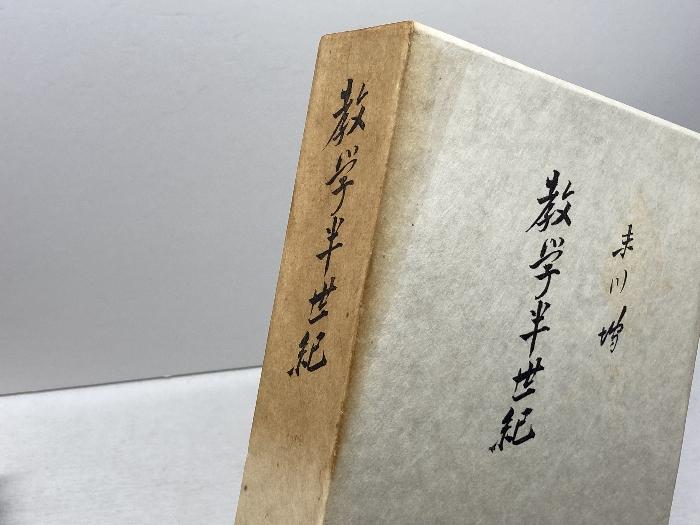 教学半世紀
末川博
教学半世紀